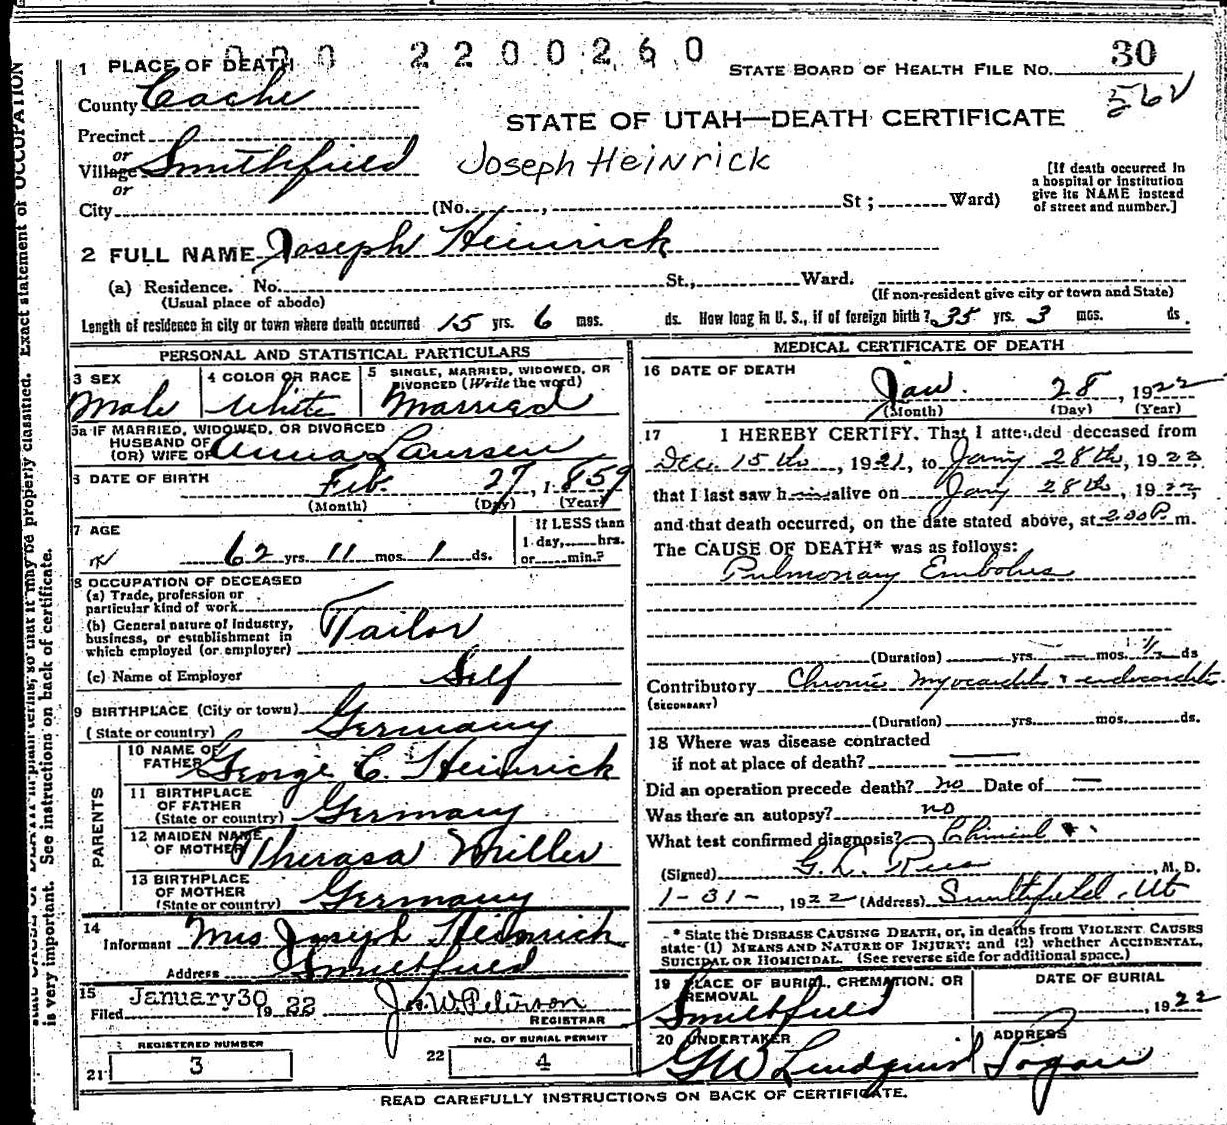 000 2200260
1 PLACE OF DEATH
STATE BOARD OF HEALTH FILE NO. 30
562
County Cache
STATE OF UTAH—DEATH CERTIFICATE
Precinct
or
Village Smithfield
Joseph Heinrick
or
City (No. , St; Ward)
[If death occurred in
a hospital or institution
give its NAME instead
of street and number.]
2 FULL NAME Joseph Heinrick
(a) Residence. No. St., Ward.
(Usual place of abode)
(If non-resident give city or town and State)
Length of residence in city or town where death occurred 15 yrs. 6 mos. ds. How long in U. S., if of foreign birth? 35 yrs. 3 mos. ds.
PERSONAL AND STATISTICAL PARTICULARS
3 SEX
Male
4 COLOR OR RACE
White
5 SINGLE, MARRIED, WIDOWED, OR
DIVORCED (Write the word)
Married
5a IF MARRIED, WIDOWED, OR DIVORCED
HUSBAND OF
(OR) WIFE OF Anna Laursen
6 DATE OF BIRTH Feb. 27, 1859
(Month) (Day) (Year)
7 AGE
62 yrs. 11 mos. 1 ds.
If LESS than
1 day, hrs.
or min.?
8 OCCUPATION OF DECEASED
(a) Trade, profession or
particular kind of work
(b) General nature of industry,
business, or establishment in
which employed (or employer)
Tailor
(c) Name of Employer Self
9 BIRTHPLACE (City or town)
(State or country) Germany
PARENTS
10 NAME OF
FATHER George C. Heinrick
11 BIRTHPLACE
OF FATHER
(State or country) Germany
12 MAIDEN NAME
OF MOTHER Therasa Miller
13 BIRTHPLACE
OF MOTHER
(State or country) Germany
14
Informant Mrs Joseph Heinrick
Address Smithfield
15
Filed January 30 1922 Jos. W. Peterson
REGISTRAR
REGISTERED NUMBER
21 3
NO. OF BURIAL PERMIT
22 4
MEDICAL CERTIFICATE OF DEATH
16 DATE OF DEATH
Jan. 28, 1922
(Month) (Day) (Year)
17 I HEREBY CERTIFY, That I attended deceased from
Dec. 15th, 1921, to Jany 28th, 1922
that I last saw h alive on Jany 28th, 1922,
and that death occurred, on the date stated above, at 2.00 P. m.
The CAUSE OF DEATH* was as follows:
Pulmonary Embolus
(Duration) yrs. — mos. ds
Contributory Chronic myocarditis & endocarditis
(SECONDARY)
(Duration) yrs. mos. ds.
18 Where was disease contracted
if not at place of death?
Did an operation precede death? no Date of —
Was there an autopsy? no
What test confirmed diagnosis? Clinical
(Signed) G. L. Rees, M. D.
1-31-, 1922 (Address) Smithfield, Ut
* State the DISEASE CAUSING DEATH, or, in deaths from VIOLENT CAUSES
state (1) MEANS AND NATURE OF INJURY; and (2) whether ACCIDENTAL,
SUICIDAL OR HOMICIDAL. (See reverse side for additional space.)
19 PLACE OF BURIAL, CREMATION, OR
REMOVAL
Smithfield
DATE OF BURIAL
, 1922
20 UNDERTAKER
GW Lindquist
ADDRESS
Logan
READ CAREFULLY INSTRUCTIONS ON BACK OF CERTIFICATE.
so that it may be properly classified. Exact statement of OCCUPATION
is very important. See instructions on back of certificate.